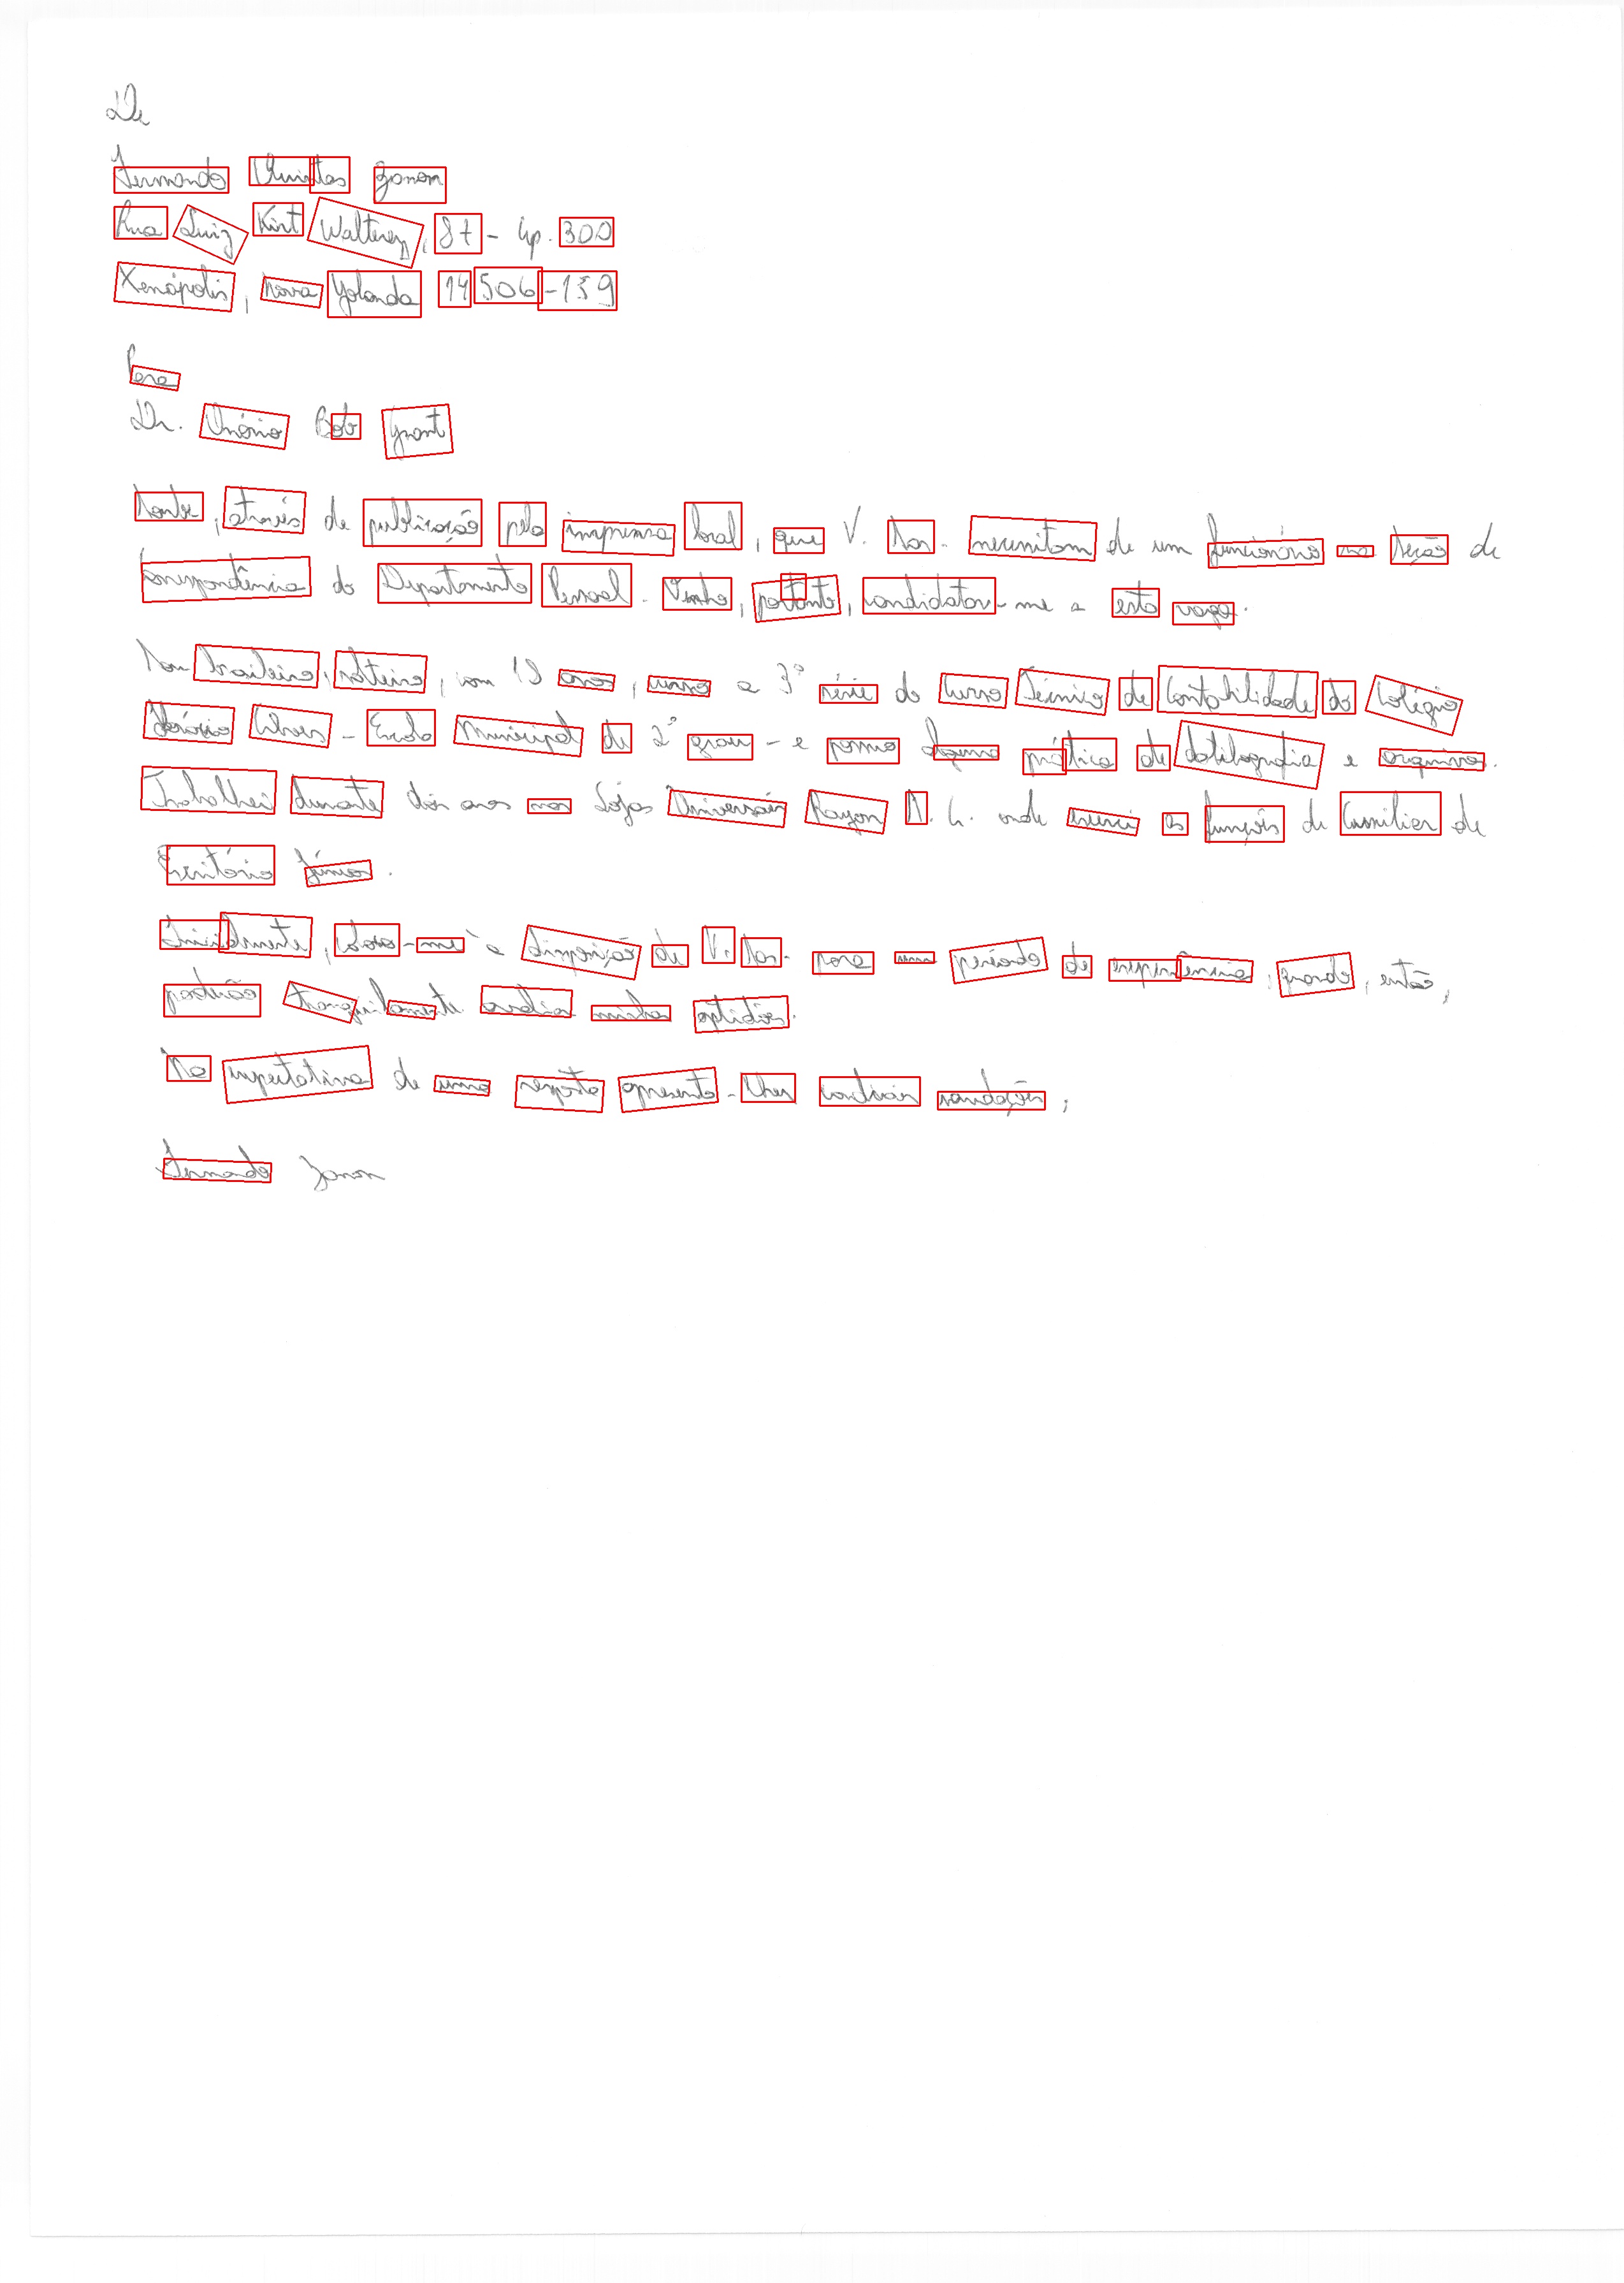 De
Fernando Quintas Zanon
Rua Luiz Kirt Walterez, 87 - Ap. 300
Xenápolis, Nova Yolanda 14506-139
Para
Dr. Onório Bob Grant
Soube, através de publicação pela imprensa local, que V. Sas. necessitam de um funcionário na Seção de
Correspondência do Departamento Pessoal. Venho, portanto, candidatar-me a esta vaga.
Sou brasileiro, solteiro, com 18 anos, curso a 3ª série do Curso Técnico de Contabilidade do Colégio
Alves - Escola Municipal de 2º grau - e possuo alguma prática de datilografia e arquivos.
Trabalhei durante dois anos nas Lojas Universais Rayon S. A. onde exerci as funções de Auxiliar de
Escritório Júnior.
Inicialmente, coloco-me à disposição de V. Sas. para um período de experiência, quando, então,
poderão tranquilamente avaliar minhas aptidões.
Na expectativa de uma resposta apresento-lhes cordiais saudações,
Fernando Zanon